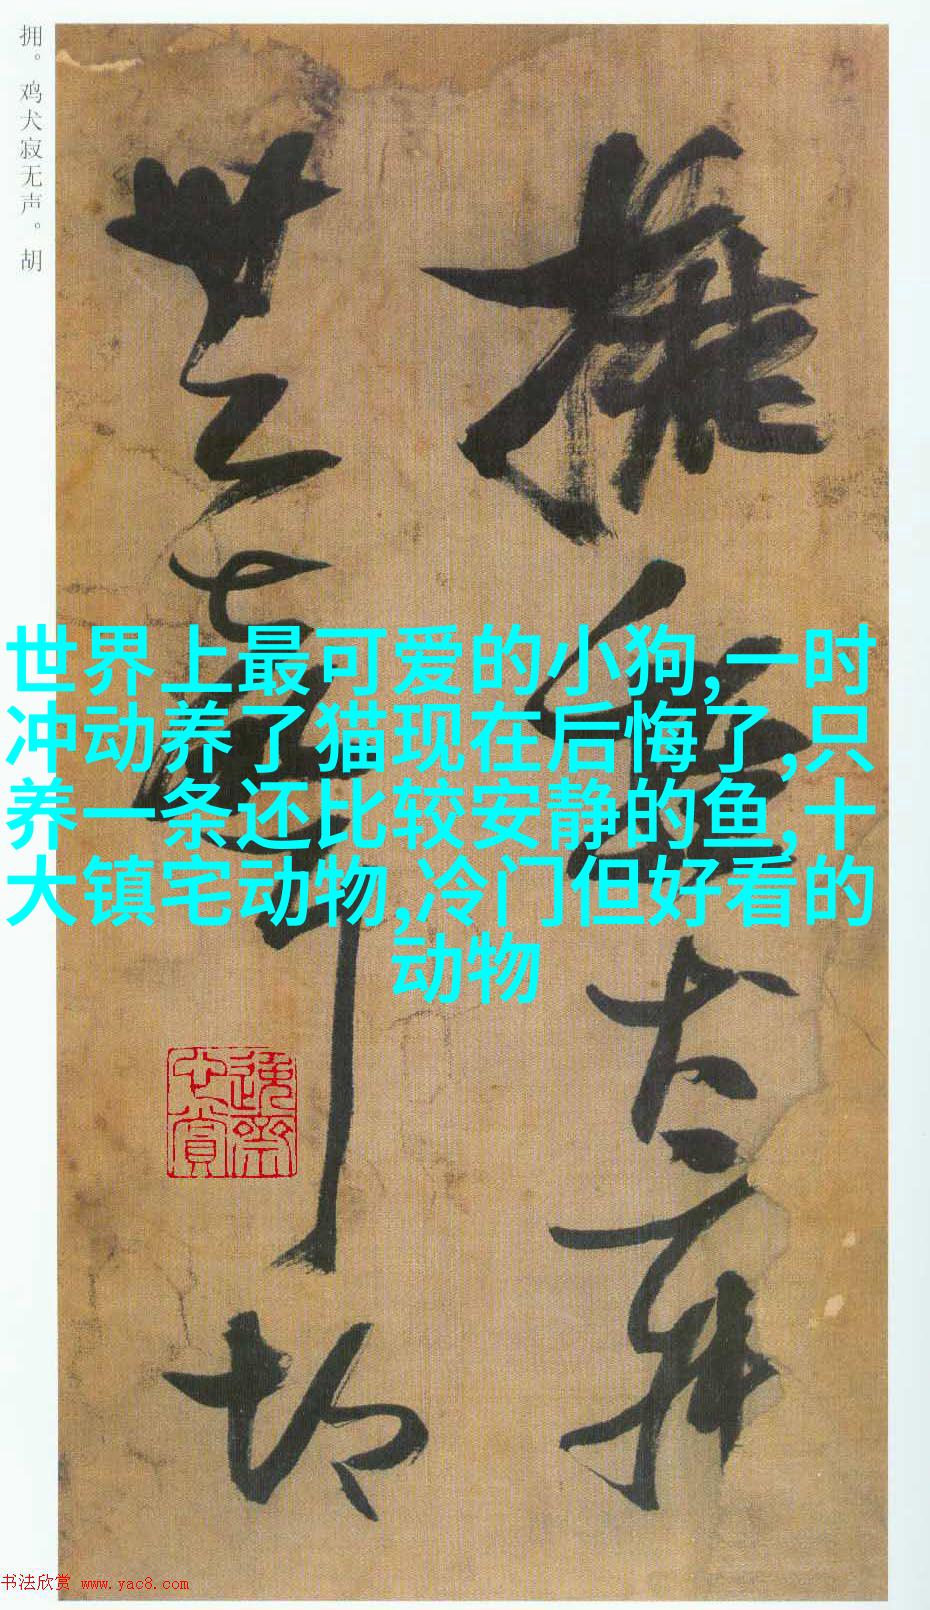 拥。鸡犬寂无声。胡
拥。鸡犬寂
无声。胡
世界上最可爱的小狗,一时
冲动养了猫现在后悔了,只
养一条还比较安静的鱼,十
大镇宅动物,冷门但好看的
动物
书法欣赏 www.yac8.com